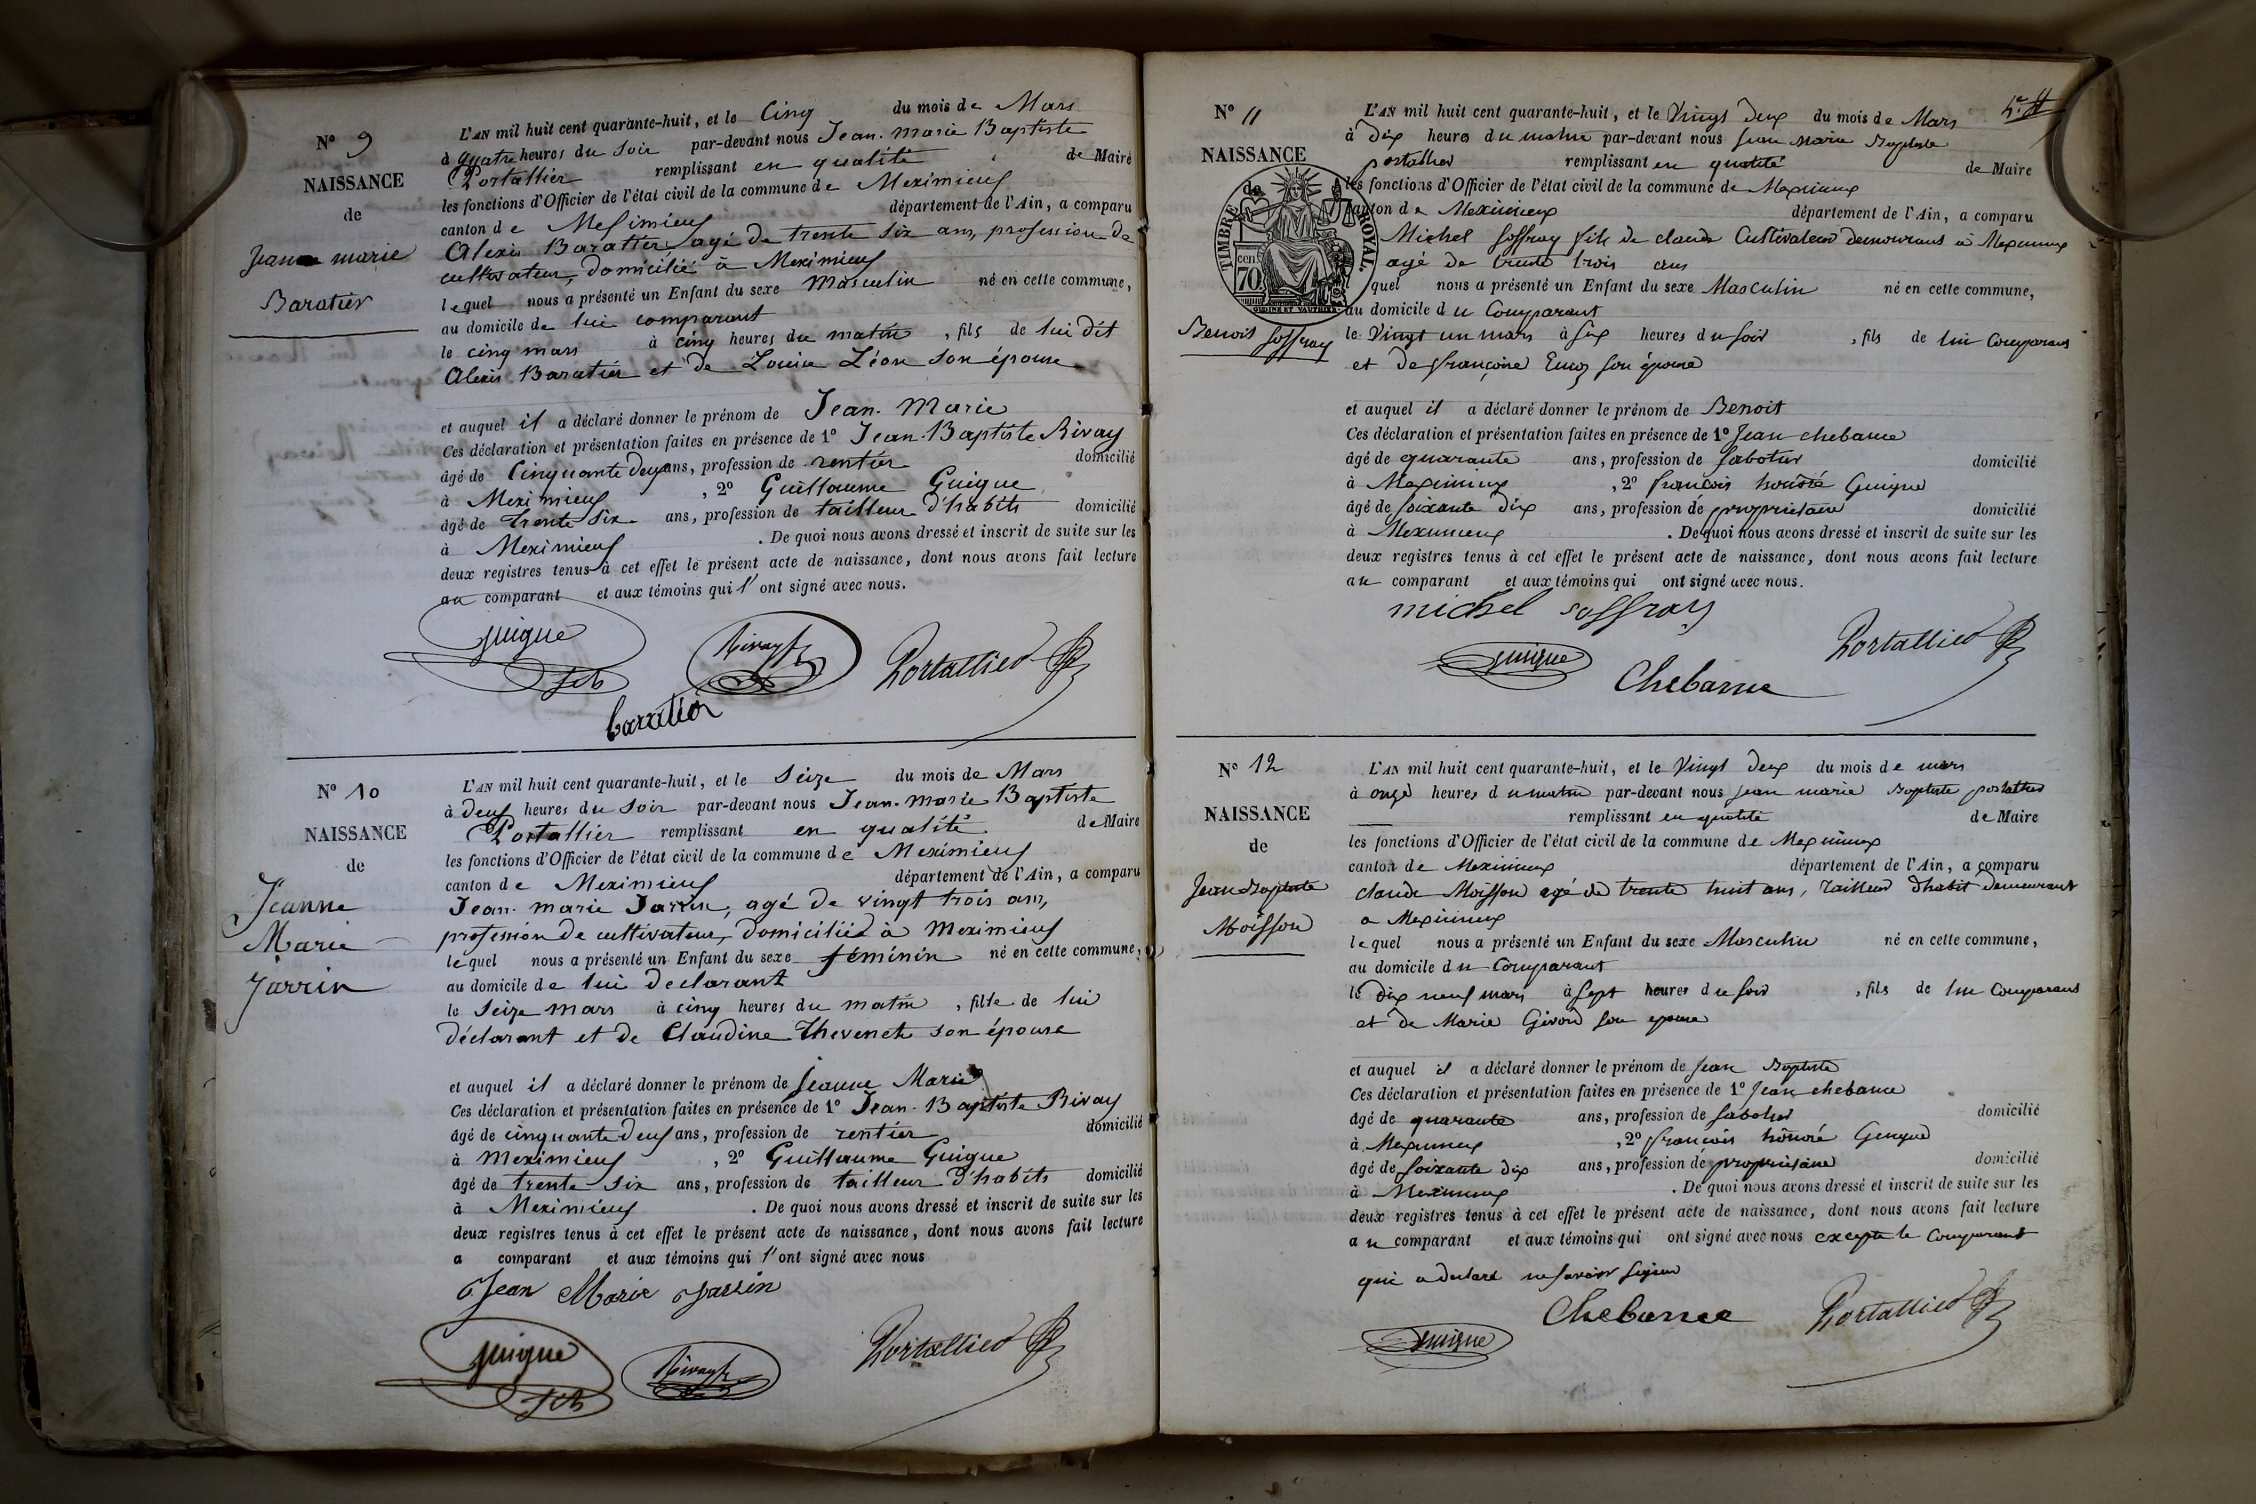 N° 9
NAISSANCE
de
Jean marie
Baratier
L'AN mil huit cent quarante-huit, et le Cinq du mois de Mars
à quatre heures du Soir par-devant nous Jean-marie Baptiste
Portallier remplissant en qualité de Maire
les fonctions d'Officier de l'état civil de la commune de Meximieux
canton de Meximieux département de l'Ain, a comparu
Alexis Baratier agé de trente six ans, profession de
cultivateur, domicilié à Meximieux
lequel nous a présenté un Enfant du sexe Masculin né en cette commune,
au domicile de lui comparant
le cinq mars à cinq heures du matin, fils de lui dit
Alexis Baratier et de Louise Léon son épouse
et auquel il a déclaré donner le prénom de Jean-Marie
Ces déclaration et présentation faites en présence de 1° Jean-Baptiste Rivay
âgé de Cinquante deux ans, profession de rentier domicilié
à Meximieux, 2° Guillaume Guigue
âgé de trente six ans, profession de tailleur d'habits domicilié
à Meximieux. De quoi nous avons dressé et inscrit de suite sur les
deux registres tenus à cet effet le présent acte de naissance, dont nous avons fait lecture
au comparant et aux témoins qui l'ont signé avec nous.
guigue
Rivay
Portallier
barratier
N° 10
NAISSANCE
de
Jeanne
Marie
Jarrin
L'AN mil huit cent quarante-huit, et le Seize du mois de Mars
à deux heures du Soir par-devant nous Jean-marie Baptiste
Portallier remplissant en qualité de Maire
les fonctions d'Officier de l'état civil de la commune de Meximieux
canton de Meximieux département de l'Ain, a comparu
Jean-marie Jarrin, agé de vingt trois ans,
profession de cultivateur, domicilié à Meximieux
lequel nous a présenté un Enfant du sexe féminin né en cette commune,
au domicile de lui declarant
le Seize mars à cinq heures du matin, fille de lui
déclarant et de Claudine Thevenet son épouse
et auquel il a déclaré donner le prénom de Jeanne Marie
Ces déclaration et présentation faites en présence de 1° Jean-Baptiste Rivay
âgé de cinquante deux ans, profession de rentier domicilié
à Meximieux, 2° Guillaume Guigue
âgé de trente six ans, profession de tailleur d'habits domicilié
à Meximieux. De quoi nous avons dressé et inscrit de suite sur les
deux registres tenus à cet effet le présent acte de naissance, dont nous avons fait lecture
a comparant et aux témoins qui l'ont signé avec nous
Jean Marie Jarrin
guigue
Rivay
Portallier
N° 11
NAISSANCE
de
TIMBRE ROYAL
70 cen.
Benoit Soffray
L'AN mil huit cent quarante-huit, et le Vingt deux du mois de Mars
à dix heures du matin par-devant nous Jean Marie Baptiste
portallier remplissant en qualité de Maire
les fonctions d'Officier de l'état civil de la commune de Meximieux
canton de Meximieux département de l'Ain, a comparu
Michel Soffray fils de claude Cultivateur demeurant à Meximieux
agé de trente trois ans
quel nous a présenté un Enfant du sexe Masculin né en cette commune,
au domicile du Comparant
le Vingt un mars à six heures du soir, fils de lui Comparant
et de françoise son épouse
et auquel il a déclaré donner le prénom de Benoit
Ces déclaration et présentation faites en présence de 1° Jean chebance
âgé de quarante ans, profession de sabotier domicilié
à Meximieux, 2° françois honoré Guigue
âgé de soixante dix ans, profession de propriétaire domicilié
à Meximieux. De quoi nous avons dressé et inscrit de suite sur les
deux registres tenus à cet effet le présent acte de naissance, dont nous avons fait lecture
au comparant et aux témoins qui ont signé avec nous.
michel soffray
guigue
Chebance
Portallier
N° 12
NAISSANCE
de
Jean Baptiste
Moisson
L'AN mil huit cent quarante-huit, et le Vingt deux du mois de mars
à onze heures du matin par-devant nous Jean marie Baptiste portallier
remplissant en qualité de Maire
les fonctions d'Officier de l'état civil de la commune de Meximieux
canton de Meximieux département de l'Ain, a comparu
claude Moisson agé de trente huit ans, tailleur d'habit demeurant
a Meximieux
lequel nous a présenté un Enfant du sexe Masculin né en cette commune,
au domicile du Comparant
le dix neuf mars à sept heures du soir, fils de lui Comparant
et de Marie Givord son epouse
et auquel il a déclaré donner le prénom de Jean Baptiste
Ces déclaration et présentation faites en présence de 1° Jean chebance
âgé de quarante ans, profession de sabotier domicilié
à Meximieux, 2° françois honoré Guigue
âgé de soixante dix ans, profession de propriétaire domicilié
à Meximieux. De quoi nous avons dressé et inscrit de suite sur les
deux registres tenus à cet effet le présent acte de naissance, dont nous avons fait lecture
au comparant et aux témoins qui ont signé avec nous excepté le Comparant
qui a declaré ne savoir signer
Chebance
Portallier
guigue